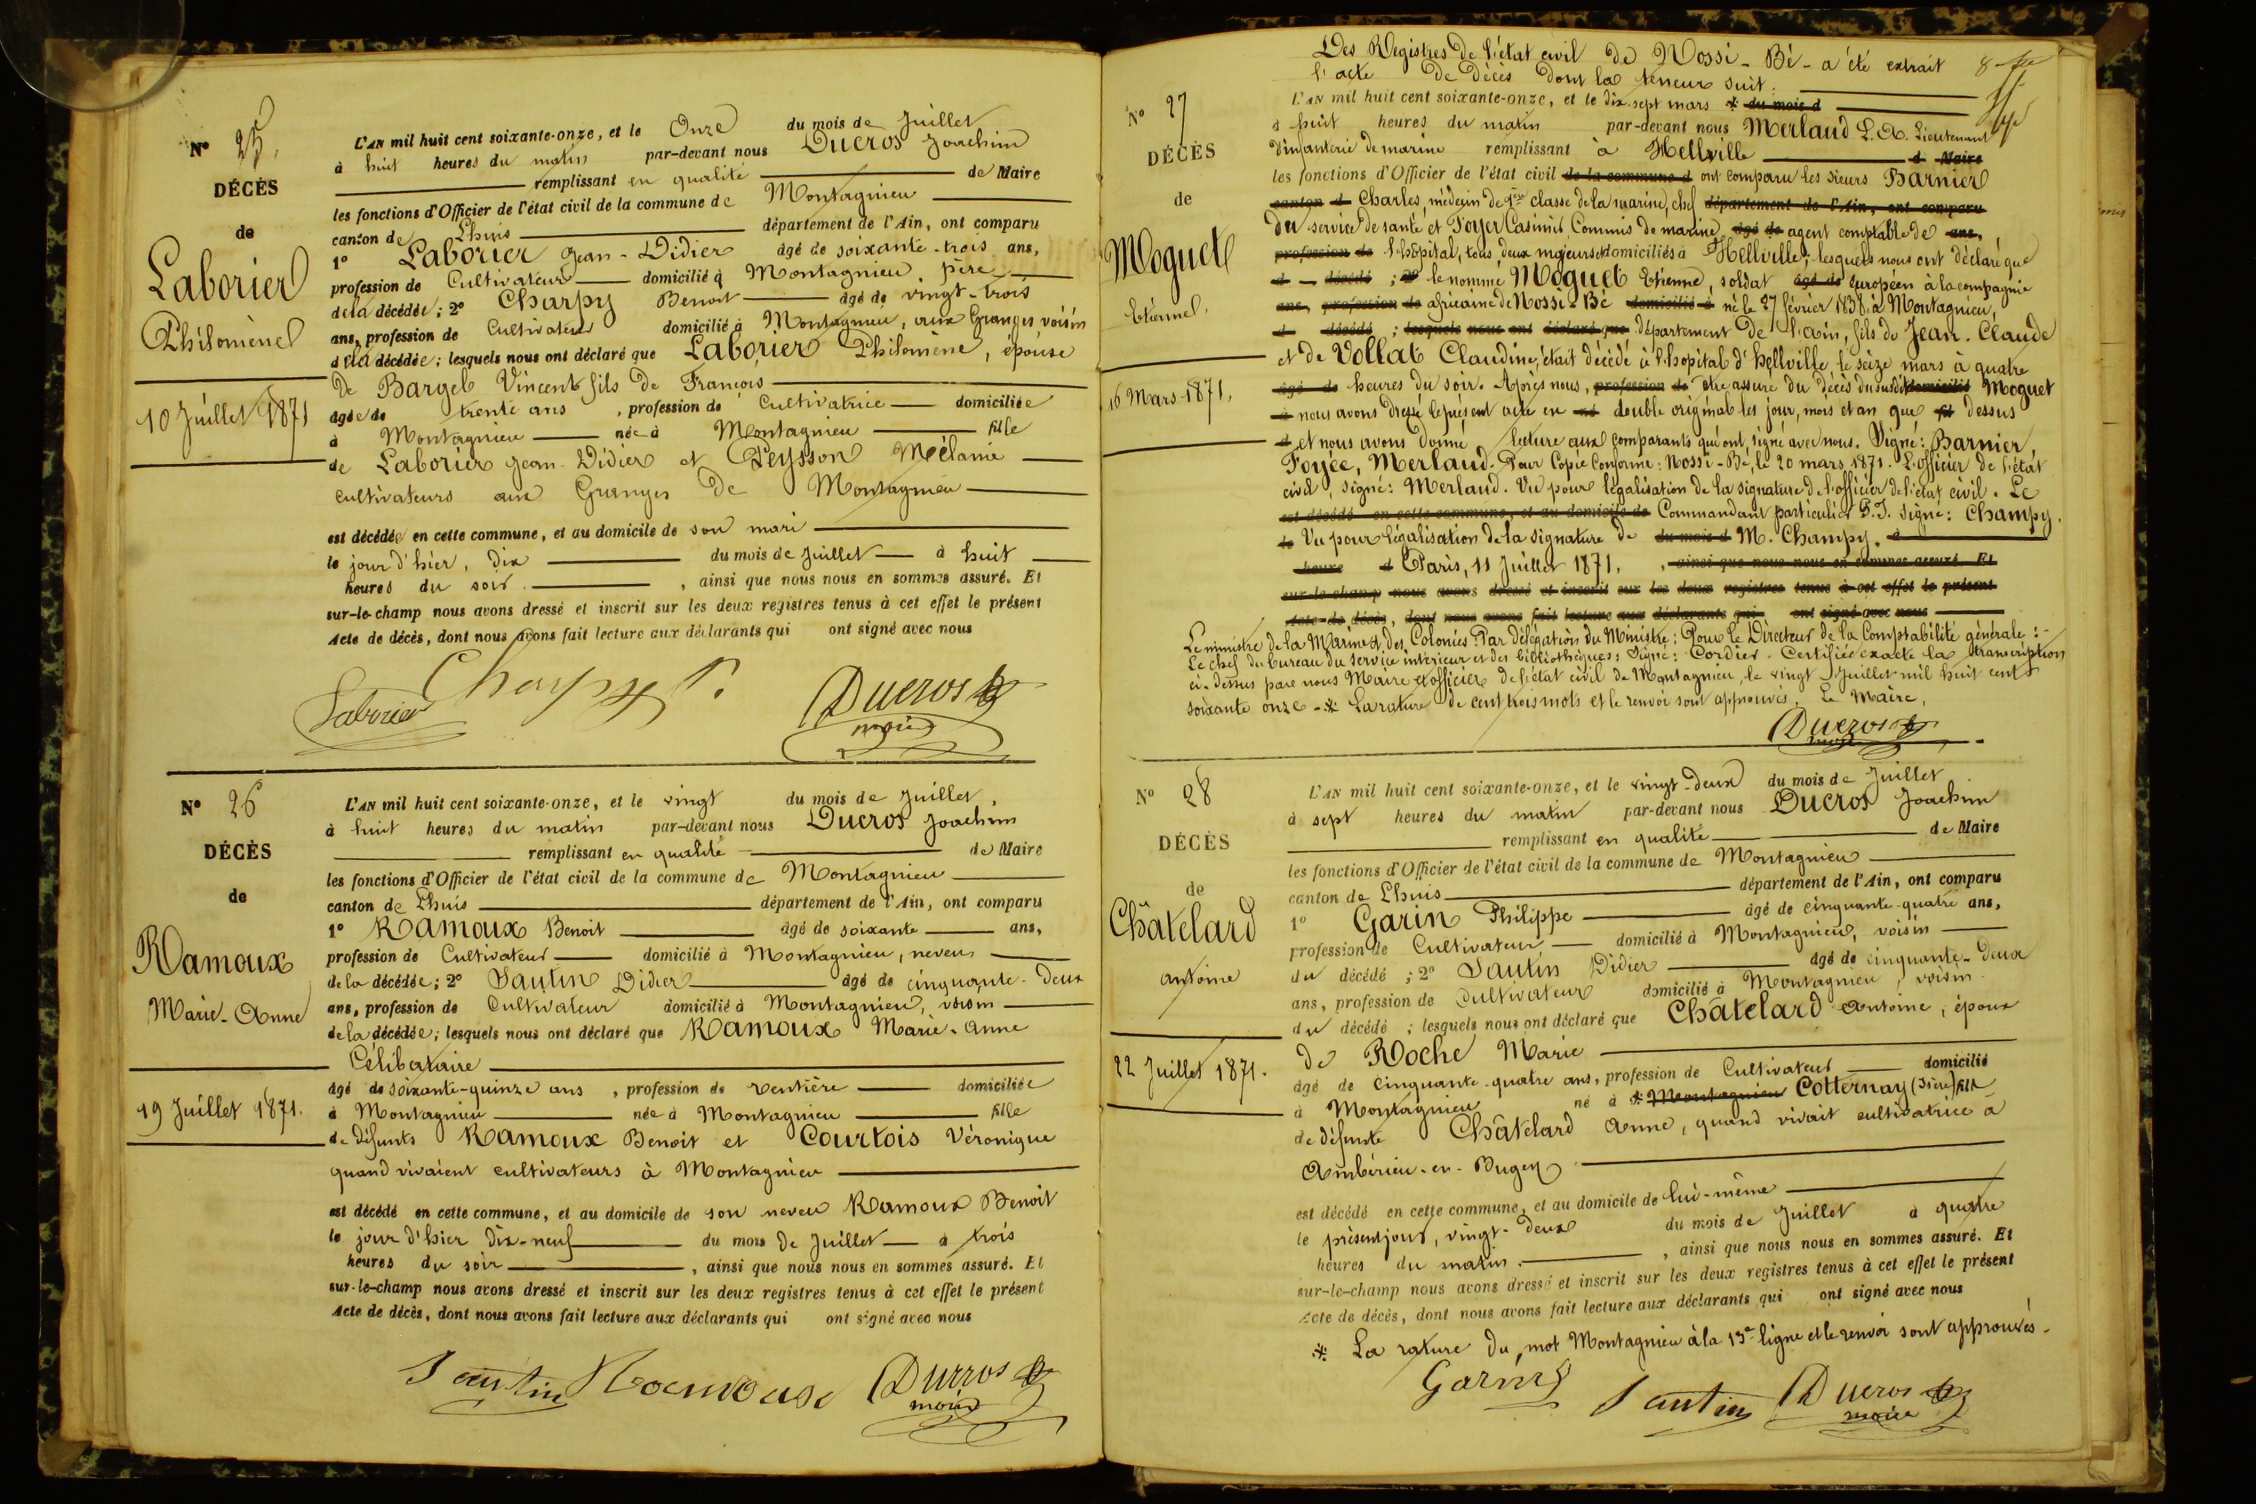 N° 25.
DÉCÈS
de
Laborier
Philomène
10 Juillet 1871
L'AN mil huit cent soixante-onze, et le Onze du mois de Juillet
à huit heures du matin par-devant nous Ducros Joachim
remplissant en qualité de Maire
les fonctions d'Officier de l'état civil de la commune de Montagnieu
canton de Lhuis département de l'Ain, ont comparu
1° Laborier Jean-Didier âgé de soixante-trois ans,
profession de Cultivateur domicilié à Montagnieu, père
de la décédée ; 2° Charpy Benoit âgé de vingt-trois
ans, profession de Cultivateur domicilié à Montagnieu, aux Granges, voisin
de la décédée ; lesquels nous ont déclaré que Laborier Philomène, épouse
de Barget Vincent fils de François
âgée de trente ans, profession de Cultivatrice domiciliée
à Montagnieu née à Montagnieu fille
de Laborier Jean-Didier et Peysson Mélanie
cultivateurs aux Granges de Montagnieu
est décédée en cette commune, et au domicile de son mari
le jour d'hier, dix du mois de Juillet à huit
heures du soir, ainsi que nous nous en sommes assuré. Et
sur-le-champ nous avons dressé et inscrit sur les deux registres tenus à cet effet le présent
Acte de décès, dont nous avons fait lecture aux déclarants qui ont signé avec nous
Laborier Charpy B. Ducros
maire
N° 26
DÉCÈS
de
Ramoux
Marie-Anne
19 Juillet 1871.
L'AN mil huit cent soixante-onze, et le vingt du mois de Juillet,
à huit heures du matin par-devant nous Ducros Joachim
remplissant en qualité de Maire
les fonctions d'Officier de l'état civil de la commune de Montagnieu
canton de Lhuis département de l'Ain, ont comparu
1° Ramoux Benoit âgé de soixante ans,
profession de Cultivateur domicilié à Montagnieu, neveu
de la décédée ; 2° Sautin Didier âgé de cinquante-deux
ans, profession de Cultivateur domicilié à Montagnieu, voisin
de la décédée ; lesquels nous ont déclaré que Ramoux Marie-Anne
Célibataire
âgé de soixante-quinze ans, profession de rentière domiciliée
à Montagnieu née à Montagnieu fille
de défunts Ramoux Benoit et Courtois Véronique
quand vivaient cultivateurs à Montagnieu
est décédé en cette commune, et au domicile de son neveu Ramoux Benoit
le jour d'hier dix-neuf du mois de Juillet à trois
heures du soir, ainsi que nous nous en sommes assuré. Et
sur-le-champ nous avons dressé et inscrit sur les deux registres tenus à cet effet le présent
Acte de décès, dont nous avons fait lecture aux déclarants qui ont signé avec nous
Sautin Ramoux Ducros
maire
N° 27
DÉCÈS
de
Moguet
Etienne.
16 Mars 1871.
Des Registres de l'état civil de Nossi-Bé a été extrait
l'acte de décès dont la teneur suit :
L'AN mil huit cent soixante-onze, et le dix-sept mars * du mois d
à huit heures du matin par-devant nous Merland L.A. Lieutenant
d'infanterie de marine remplissant à Hellville d Maire
les fonctions d'Officier de l'état civil de la commune d ont comparu les sieurs Barnier
canton d Charles, médecin de 1ère classe de la marine, chef département de l'Ain, ont comparu
du service de santé et Foyer Casimir Commis de marine, âgé de agent comptable de ans,
profession de l'hôpital, tous deux majeurs et domiciliés à Hellville, lesquels nous ont déclaré que
d décédé ; 2° le nommé Moguet Etienne, soldat âgé de européen à la compagnie
ans, profession de africaine de Nossi-Bé domicilié à né le 27 février 1838, à Montagnieu,
d décédé ; lesquels nous ont déclaré que département de l'Ain, fils de Jean-Claude
et de Vollat Claudine, était décédé à l'hôpital d'Hellville, le seize mars à quatre
âgé de heures du soir. Après nous, profession de être assuré du décès du susdit domicilié Moguet
à nous avons dressé le présent acte en né double original les jour, mois et an que fil dessus
d et nous avons donné lecture aux comparants qui ont signé avec nous. Signé : Barnier,
Foyée, Merland. Pour Copie Conforme : Nossi-Bé, le 20 mars 1871. L'officier de l'état
civil, signé : Merland. Vu pour légalisation de la signature de l'officier de l'état civil. Le
est décédé en cette commune, et au domicile de Commandant particulier P.I. signé : Champy.
le Vu pour légalisation de la signature de du mois d M. Champy. à
heure d Paris, 11 Juillet 1871. , ainsi que nous nous en sommes assuré. Et
sur-le-champ nous avons dressé et inscrit sur les deux registres tenus à cet effet le présent
Acte de décès, dont nous avons fait lecture aux déclarants qui ont signé avec nous
Le ministre de la Marine et des Colonies. Par délégation du Ministre : Pour le Directeur de la Comptabilité générale :
Le chef du bureau du service intérieur et des bibliothèques : Signé : Cordier. Certifiée exacte la transcription
ci-dessus par nous Maire et officier de l'état civil de Montagnieu, le vingt Juillet mil huit cent
soixante onze - * La rature de cent trois mots et le renvoi sont approuvés. Le Maire,
Ducros
maire
N° 28
DÉCÈS
de
Châtelard
Antoine
22 Juillet 1871.
L'AN mil huit cent soixante-onze, et le vingt-deux du mois de Juillet
à sept heures du matin par-devant nous Ducros Joachim
remplissant en qualité de Maire
les fonctions d'Officier de l'état civil de la commune de Montagnieu
canton de Lhuis département de l'Ain, ont comparu
1° Garin Philippe âgé de cinquante-quatre ans,
profession de Cultivateur domicilié à Montagnieu, voisin
du décédé ; 2° Sautin Didier âgé de cinquante-deux
ans, profession de Cultivateur domicilié à Montagnieu, voisin
du décédé ; lesquels nous ont déclaré que Châtelard Antoine, époux
de Roche Marie
âgé de cinquante-quatre ans, profession de Cultivateur domicilié
à Montagnieu né à * Montagnieu Cotternay (Isère) fils
de défunte Châtelard Anne, quand vivait cultivatrice à
Ambérieu-en-Bugey
est décédé en cette commune, et au domicile de lui-même
le présent jour, vingt-deux du mois de Juillet à quatre
heures du matin, ainsi que nous nous en sommes assuré. Et
sur-le-champ nous avons dressé et inscrit sur les deux registres tenus à cet effet le présent
Acte de décès, dont nous avons fait lecture aux déclarants qui ont signé avec nous
* La rature du mot Montagnieu à la 13e ligne et le renvoi sont approuvés.
Garin Sautin Ducros
maire